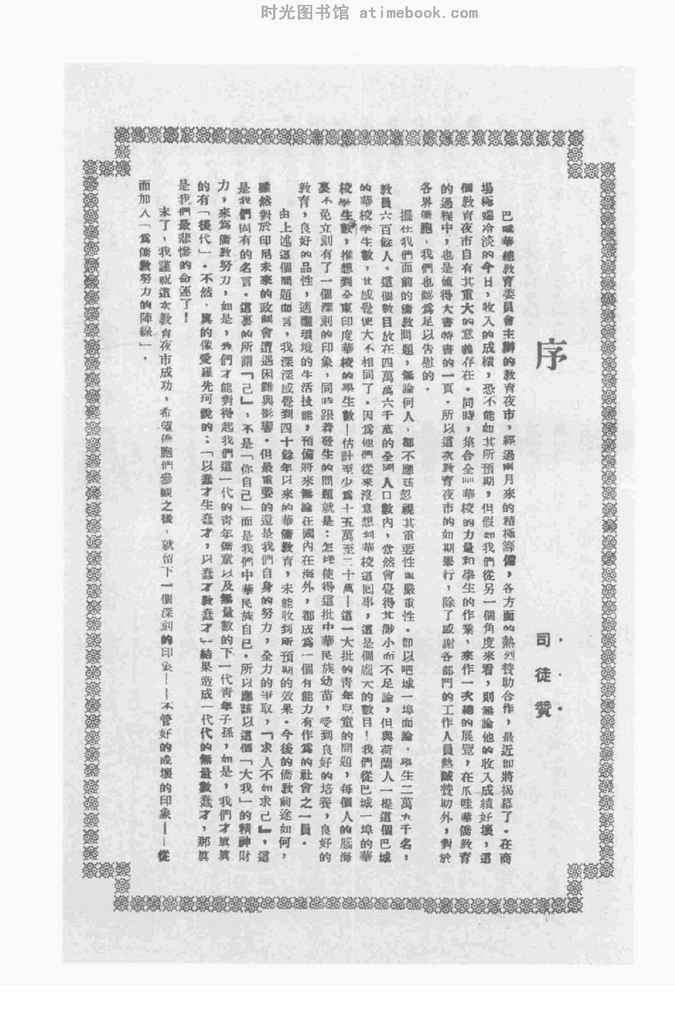 时光图书馆 atimebook.com
序
司徒贊
巴城華總教育委員會主辦的教育夜市,經過兩月來的積極籌備,各方面的熱烈贊助合作,最近即將揭幕了。在商
場極端冷淡的今日,收入的成績,恐不能如其所預期,但假如我們從另一個角度來看,則無論他的收入成績好壞,這
個教育夜市自有其重大的意義存在。同時,集合全華校的力量和學生的作業,來作一次總的展覽,在爪哇華僑教育
的過程中,也是値得大書特書的一頁。所以這次教育夜市的如期舉行,除了感謝各部門的工作人員熱誠贊助外,對於
各界僑胞,我們也認爲足以告慰的。
擺在我們面前的僑教問題,無論何人,都不應該忽視其重要性與嚴重性。即以吧城一埠而論,學生二萬九千名,
教員六百餘人。這個數目放在四萬萬六千萬的全國人口數內,當然會覺得其渺小而不足論,但與荷蘭人一提這個巴城
的華校學生數,其感覺便大不相同了。因爲他們從來沒意想到華校這回事,這是個龐大的數目!我們從巴城一埠的華
校學生數,推想到全東印度華校的學生數—估計至少爲十五萬至二十萬—這一大批的靑年兒童的問題,每個人的腦海
裏不免立刻有了一個深刻的印象,同時跟着發生的問題就是:怎樣使得這批中華民族幼苗,受到良好的培養,良好的
教育,良好的品性,適應環境的生活技能,預備將來無論在國內在海外,都成爲一個有能力有作爲的社會之一員。
由上述這個問題而言,我深深感覺到四十餘年以來的華僑教育,未能收到所預期的效果。今後的僑教前途如何,
雖然對於印尼未來的政制會遭遇困難與影響。但最重要的還是我們自身的努力,全力的爭取,「求人不如求己」,這
是我們固有的名言。這裏的所謂「己」,不是「你自己」而是我們中華民族自己。所以應該以這個「大我」的精神財
力,來爲僑教努力,如是,我們才能對得起我們這一代的靑年僑童以及無量數的下一代靑年子孫,如是,我們才眞眞
的有「後代」。不然,眞的像愛羅先珂說的:「以蠢才生蠢才,以蠢才教蠢才」結果造成一代代的無量數蠢才,那眞
是我們最悲慘的命運了!
末了,我謹祝這次教育夜市成功,希望僑胞們參觀之後,就留下一個深刻的印象——不管好的或壞的印象——從
而加入「爲僑教努力的陣線」。